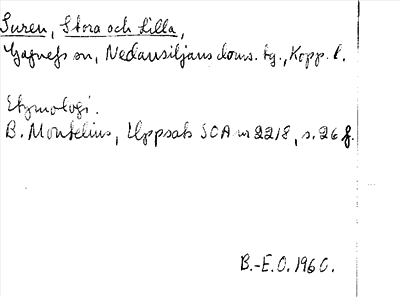 Suren, Stora och Lilla,
Gagnefs sn, Nedansiljans doms. tg., Kopp. l.
Etymologi.
B. Montelius, Uppsats SOA nr 2218, s. 26 f.
B.-E.O. 1960.